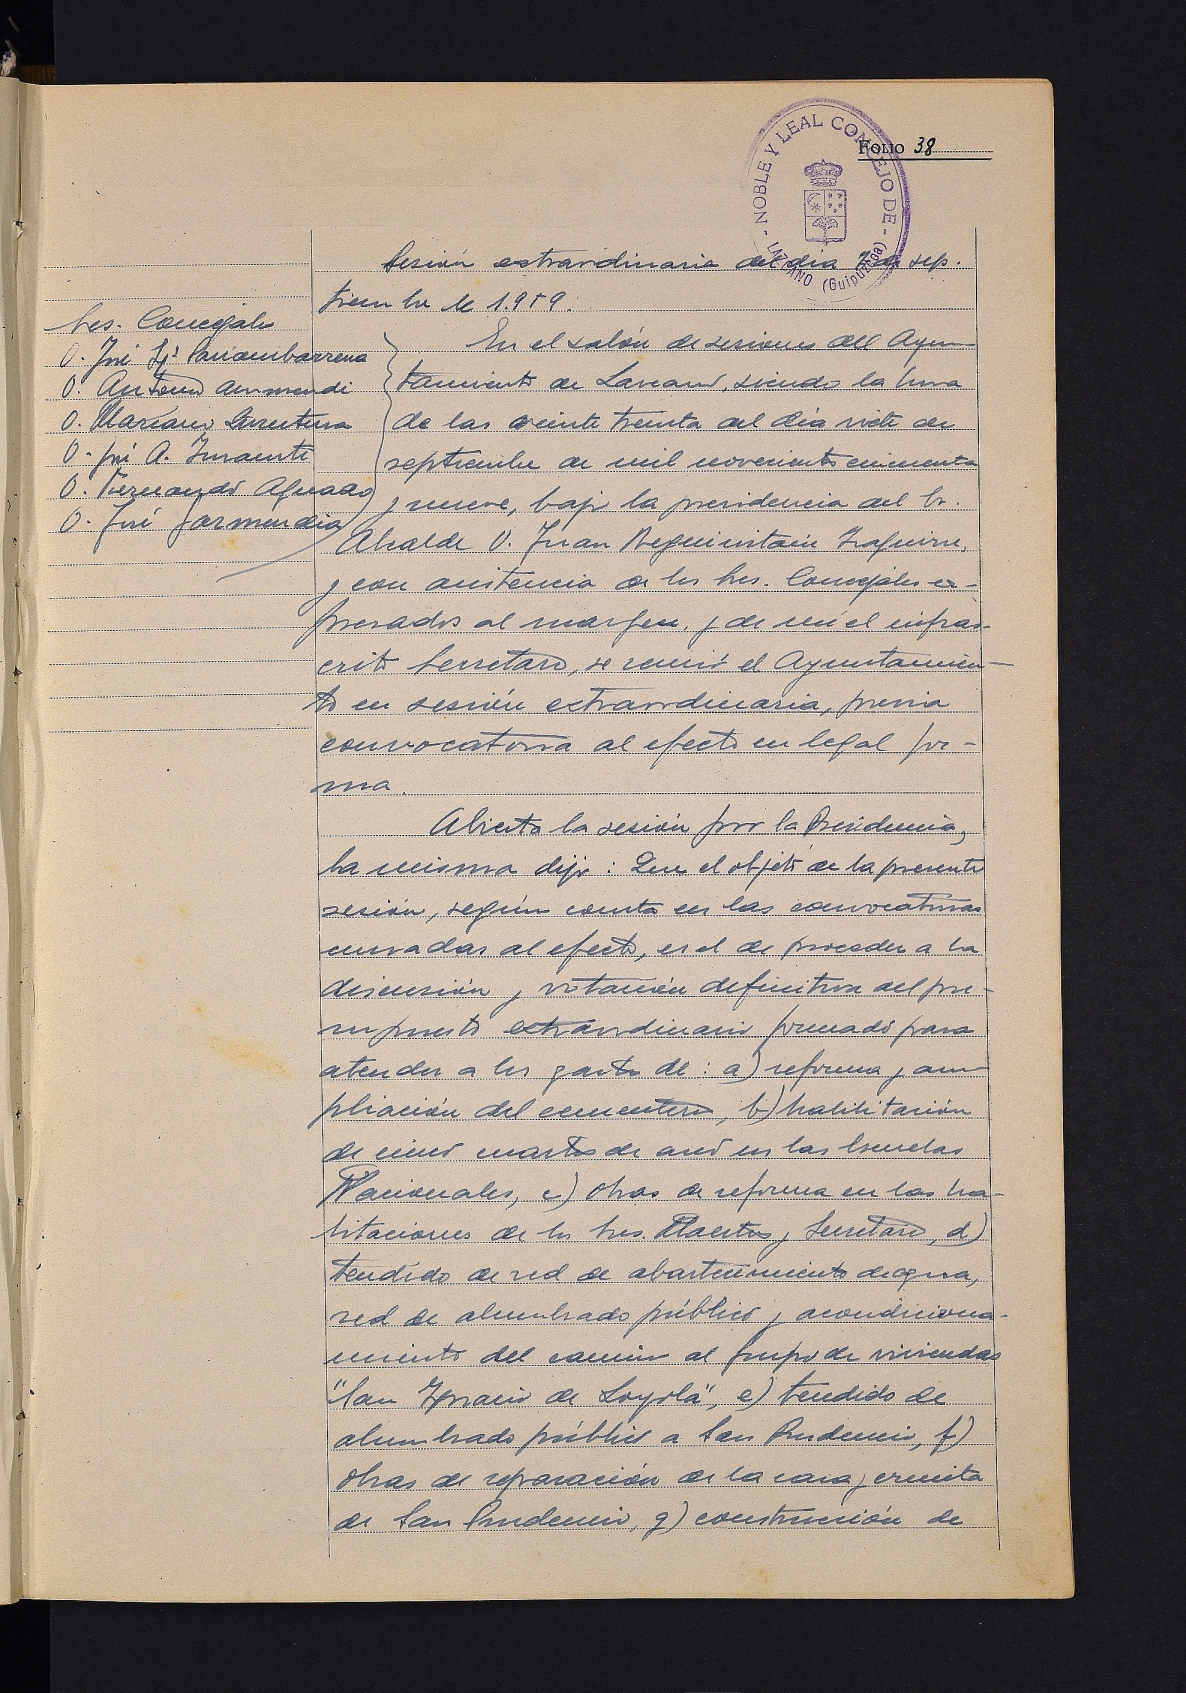 NOBLE Y LEAL CONCEJO DE
LAZCANO (Guipúzcoa)
FOLIO 38
Sesión extraordinaria del día 7 de sep-
tiembre de 1.959.
Sres. Concejales
D. José
D. Antonio Armendi
D. Mariano
D. José A.
D. Fernando Aguado
D. José Garmendia
En el salón de sesiones del Ayun-
tamiento de Lazcano, siendo la hora
de las veinte treinta del día siete de
septiembre de mil novecientos cincuenta
y nueve, bajo la presidencia del Sr.
Alcalde D. Juan Izaguirre,
y con asistencia de los Sres. Concejales ex-
presados al margen, y de mí el infras-
crito Secretario, se reunió el Ayuntamien-
to en sesión extraordinaria, previa
convocatoria al efecto en legal for-
ma.
Abierta la sesión por la Presidencia,
la misma dijo: Que el objeto de la presente
sesión, según consta en las convocatorias
enviadas al efecto, es el de proceder a la
discusión y votación definitiva del pre-
supuesto extraordinario formado para
atender a los gastos de: a) reforma y am-
pliación del cementerio, b) habilitación
de cinco cuartos de aseo en las Escuelas
Nacionales, c) obras de reforma en las ha-
bitaciones de los Sres. Maestros y Secretario, d)
tendido de red de abastecimiento de agua,
red de alumbrado público y acondiciona-
miento del camino al grupo de viviendas
"San Ignacio de Loyola", e) tendido de
alumbrado público a San Prudencio, f)
obras de reparación de la casa y ermita
de San Prudencio, g) construcción de